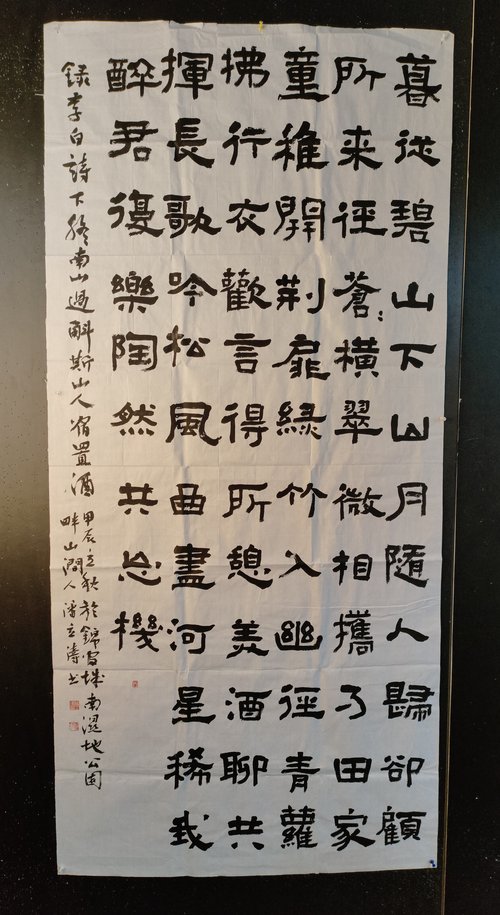 暮從碧山下山月隨人歸卻顧
所来徑蒼〻橫翠微相攜乃田家
童稚開荆扉綠竹入幽徑青蘿
拂行衣歡言得所憩美酒聊共
揮長歌吟松風曲盡河星稀我
醉君復樂陶然共忘機
録李白詩下終南山過斛斯山人宿置酒
甲辰立秋於錦官城南濕地公园
畔山澗人潘立濤书